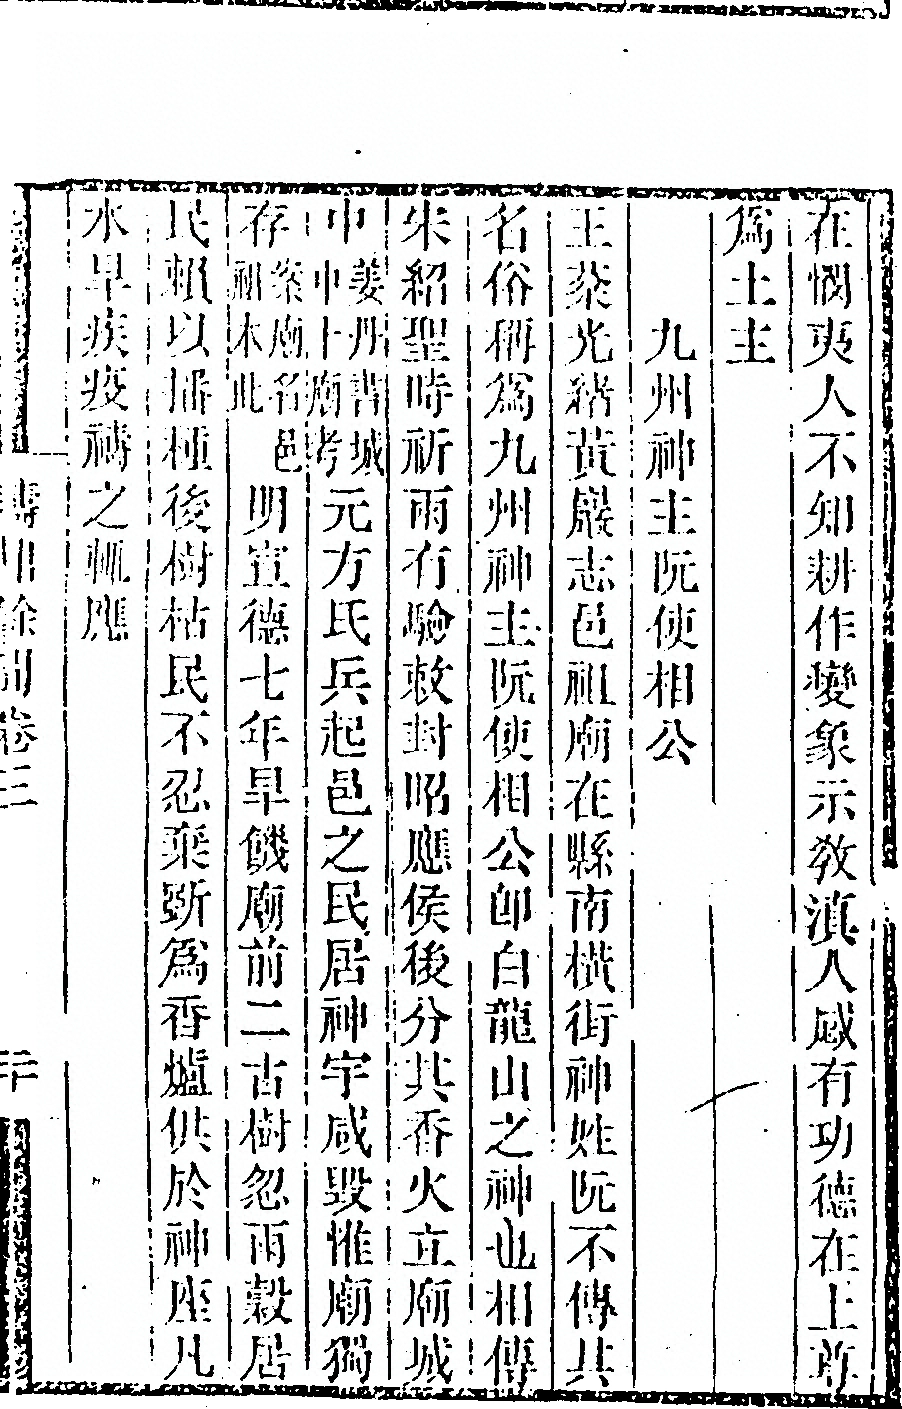 在憫夷人不知耕作變象示教滇人感有功德在土尊
為土主
九州神主阮使相公
王棻光緒黃巖志邑祖廟在縣南橫街神姓阮不傳其
名俗稱為九州神主阮使相公卽白龍山之神也相傳
朱紹聖時祈雨有驗敕封昭應侯後分其香火立廟城
中姜丹書城中十廟考元方氏兵起邑之民居神宇咸毀惟廟獨
存案廟名邑祖木此明宣德七年旱饑廟前二古樹忽雨穀居
民賴以播種後樹枯民不忍棄斲為香爐供於神座凡
水旱疾疫禱之輒應
卷三
二十